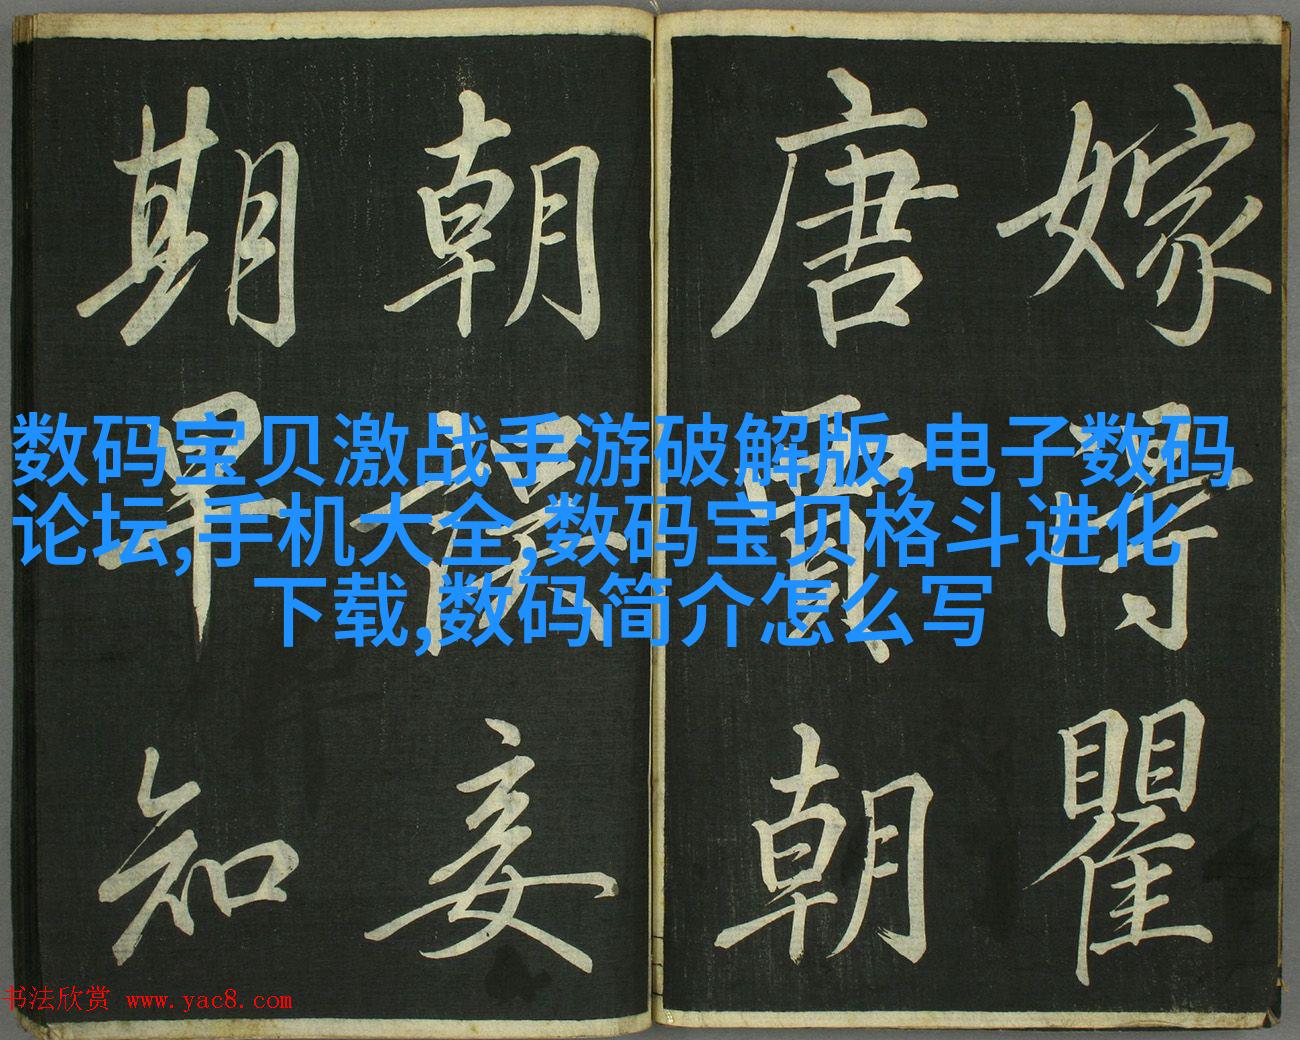 数码宝贝激战手游破解版,电子数码
论坛,手机大全,数码宝贝格斗进化
下载,数码简介怎么写
嫁得瞿
唐賈朝
朝妾
期早知
书法欣赏 www.yac8.com